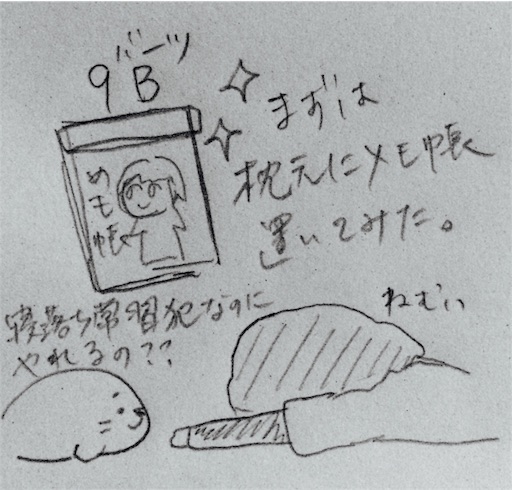 9B
まずは
枕元にメモ帳
置いてみた。
めモ帳
寝落ち常習犯なのに
やれるの??
ねむい